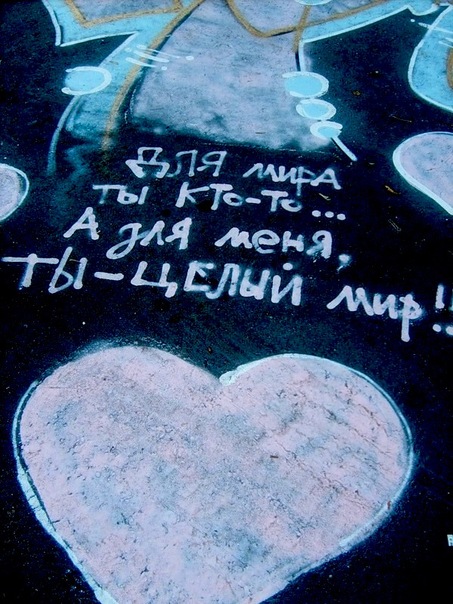 Для мира
ты кто-то...
А для меня,
ТЫ-ЦЕЛЫЙ мир!!